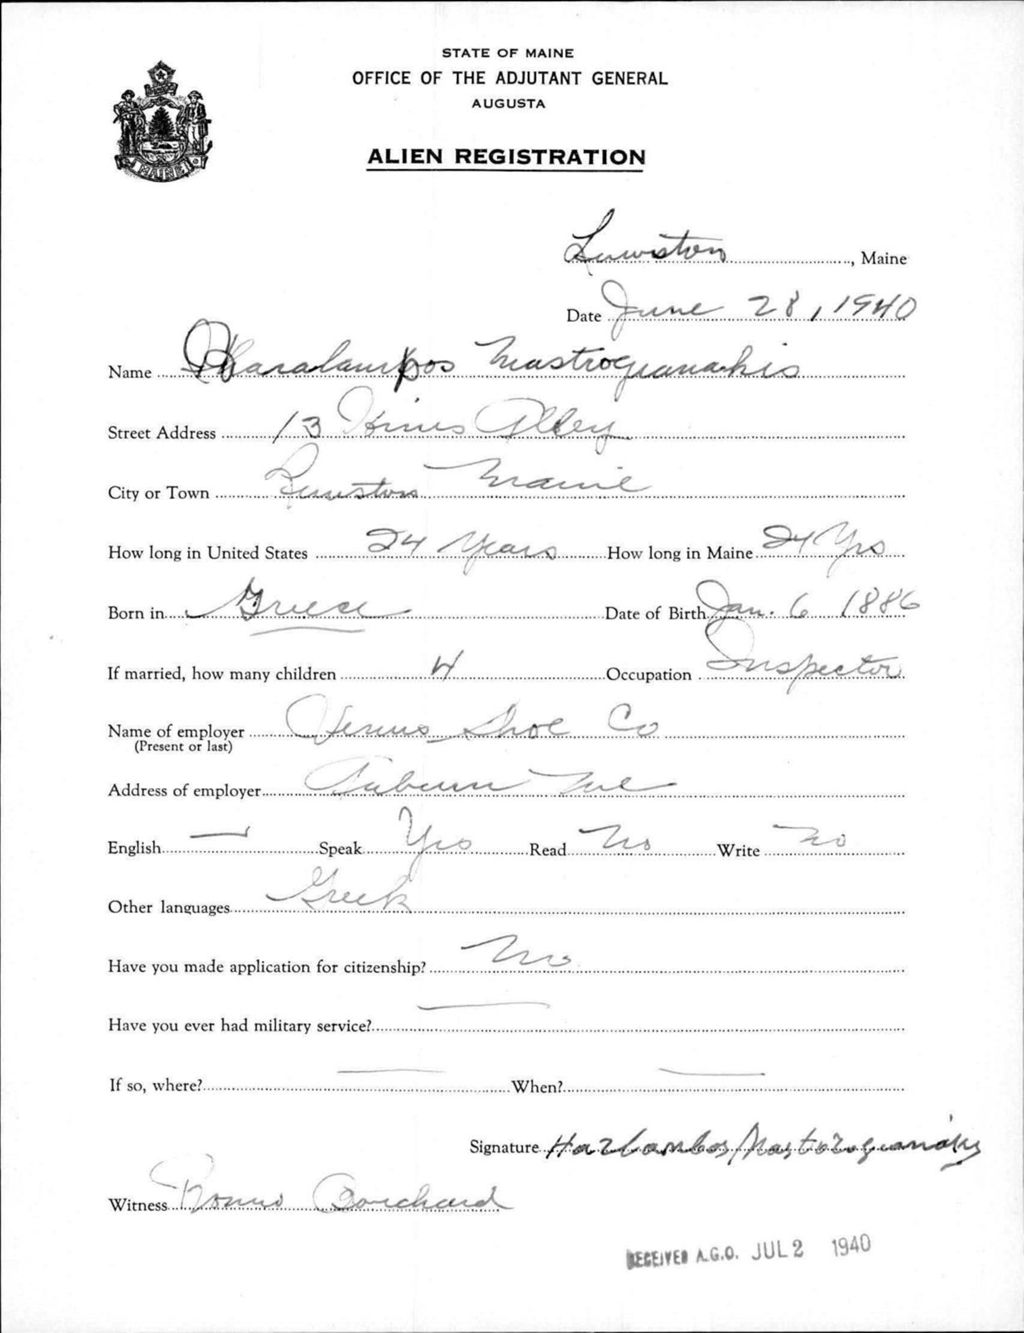 STATE OF MAINE
OFFICE OF THE ADJUTANT GENERAL
AUGUSTA
MAINE
ALIEN REGISTRATION
Lewiston, Maine
Date June 28, 1940
Name Charalampos Mastrogianakis
Street Address 13 Alley
City or Town Lewiston Maine
How long in United States 24 Years How long in Maine 24 Yrs
Born in Greece Date of Birth Jan. 6 1886
If married, how many children 4 Occupation Inspector
Name of employer Venus Shoe Co
(Present or last)
Address of employer Auburn Me
English — Speak Yes Read No Write No
Other languages Greek
Have you made application for citizenship? No
Have you ever had military service? —
If so, where? — When? —
Signature Harlambos Mastrogianakis
Witness Borchard
RECEIVED A.G.O. JUL 2 1940